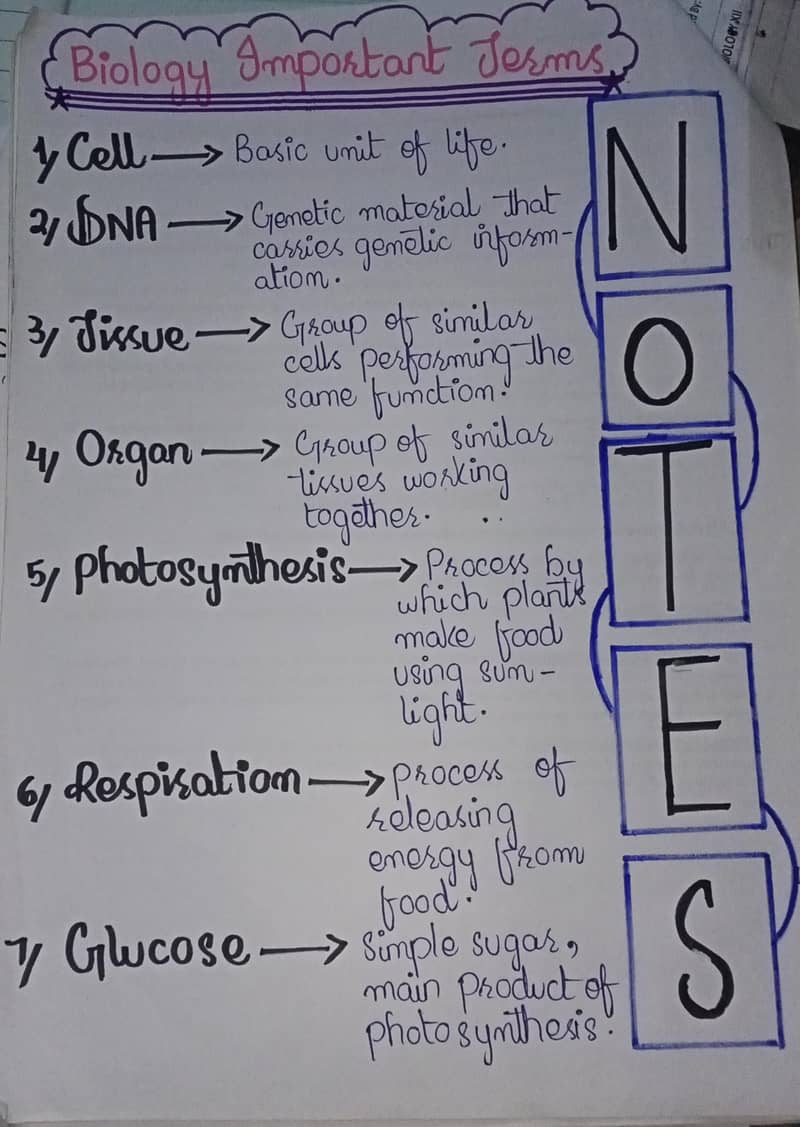 Biology Important Terms
1) Cell → Basic unit of life.
2) DNA → Genetic material that
carries genetic inform-
ation.
3) Tissue → Group of similar
cells performing the
same function.
4) Organ → Group of similar
tissues working
together.
5) Photosynthesis → Process by
which plants
make food
using sun-
light.
6) Respiration → Process of
releasing
energy from
food.
7) Glucose → Simple sugar,
main product of
photosynthesis.
N
O
T
E
S
d By:
BIOLOGY-XII